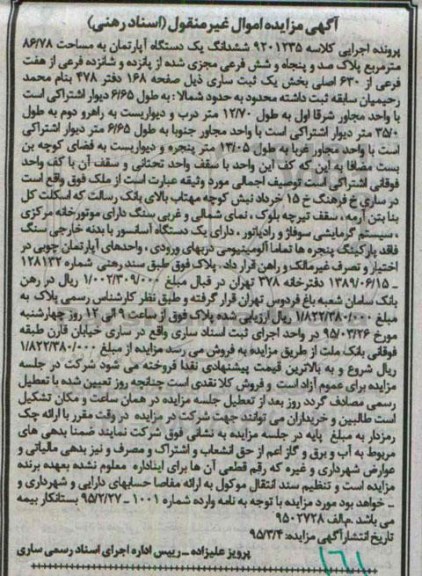 آگهی مزایده اموال غیر منقول (اسناد رهنی)
پرونده اجرایی کلاسه ۹۲۰۱۲۳۵ ششدانگ یک دستگاه آپارتمان به مساحت ۸۶/۷۸
مترمربع پلاک صد و پنجاه و شش فرعی مجزی شده از پانزده و شانزده فرعی از هفت
فرعی از ۶۳۰ اصلی بخش یک ثبت ساری ذیل صفحه ۱۶۸ دفتر ۴۷۸ بنام محمد
رحیمیان سابقه ثبت داشته محدود به حدود شمالا: به طول ۶/۶۵ دیوار اشتراکی است
با واحد مجاور شرقا اول به طول ۱۲/۷۰ متر درب و دیواریست به راهرو دوم به طول
۳۵/۰ متر دیوار اشتراکی است با واحد مجاور جنوبا به طول ۶/۶۵ متر دیوار اشتراکی
است با واحد مجاور غربا به طول ۱۳/۰۵ متر پنجره و دیواریست به فضای کوچه بن
بست مضافا به این که کف این واحد با سقف واحد تحتانی و سقف آن با کف واحد
فوقانی اشتراکی است توصیف اجمالی مورد وثیقه عبارت است از ملک فوق واقع است
در ساری خ فرهنگ خ ۱۵ خرداد نبش کوچه مهتاب بالای بانک رسالت که اسکلت کل
بنا بتن آرمه، سقف تیرچه بلوک، نمای شمالی و غربی سنگ دارای موتورخانه مرکزی
، سیستم گرمایشی سوفاژ و رادیاتور، دارای یک دستگاه آسانسور با بدنه خارجی سنگ
فاقد پارکینگ پنجره ها تماما آلومینیومی دربهای ورودی، واحدهای آپارتمان چوبی در
اختیار و تصرف غیرمالک و راهن قرار داد. پلاک فوق طبق سند رهنی شماره ۱۲۸۱۳۲
ـ ۱۳۸۹/۰۶/۱۵ دفترخانه ۳۷۸ تهران در قبال مبلغ ۱/۰۰۲/۳۰۹/۰۰۰ ریال در رهن
بانک سامان شعبه باغ فردوس تهران قرار گرفته و طبق نظر کارشناس رسمی پلاک به
مبلغ ۱/۸۲۲/۳۸۰/۰۰۰ ریال ارزیابی شده پلاک فوق از ساعت ۹ الی ۱۲ روز چهارشنبه
مورخ ۹۵/۰۳/۲۶ در واحد اجرای ثبت اسناد ساری واقع در ساری خیابان قارن طبقه
فوقانی بانک ملت از طریق مزایده به فروش می رسد مزایده از مبلغ ۱/۸۲۲/۳۸۰/۰۰۰
ریال شروع و به بالاترین قیمت پیشنهادی نقدا فروخته می شود شرکت در جلسه
مزایده برای عموم آزاد است و فروش کلا نقدی است چنانچه روز تعیین شده با تعطیل
رسمی مصادف گردد روز بعد از تعطیل جلسه مزایده در همان ساعت و مکان تشکیل
است طالبین و خریداران می توانند جهت شرکت در مزایده در وقت مقرر با ارائه چک
رمزدار به مبلغ پایه در جلسه مزایده به نشانی فوق شرکت نمایند ضمنا بدهی های
مربوط به آب و برق و گاز اعم از حق انشعاب و اشتراک و مصرف و نیز بدهی مالیاتی و
عوارض شهرداری و غیره که رقم قطعی آن ها برای این اداره معلوم نشده بعهده برنده
مزایده است و تنظیم سند انتقال موکول به ارائه مفاصا حسابهای دارایی و شهرداری و
ـ خواهد بود مورد مزایده با توجه به نامه وارده شماره ۱۰۰۱ ـ ۹۵/۲/۲۷ بستانکار بیمه
می باشد .م.الف ۹۵۰۲۷۲۸
تاریخ انتشار آگهی مزایده: ۹۵/۳/۴
پرویز علیزاده ـ رییس اداره اجرای اسناد رسمی ساری